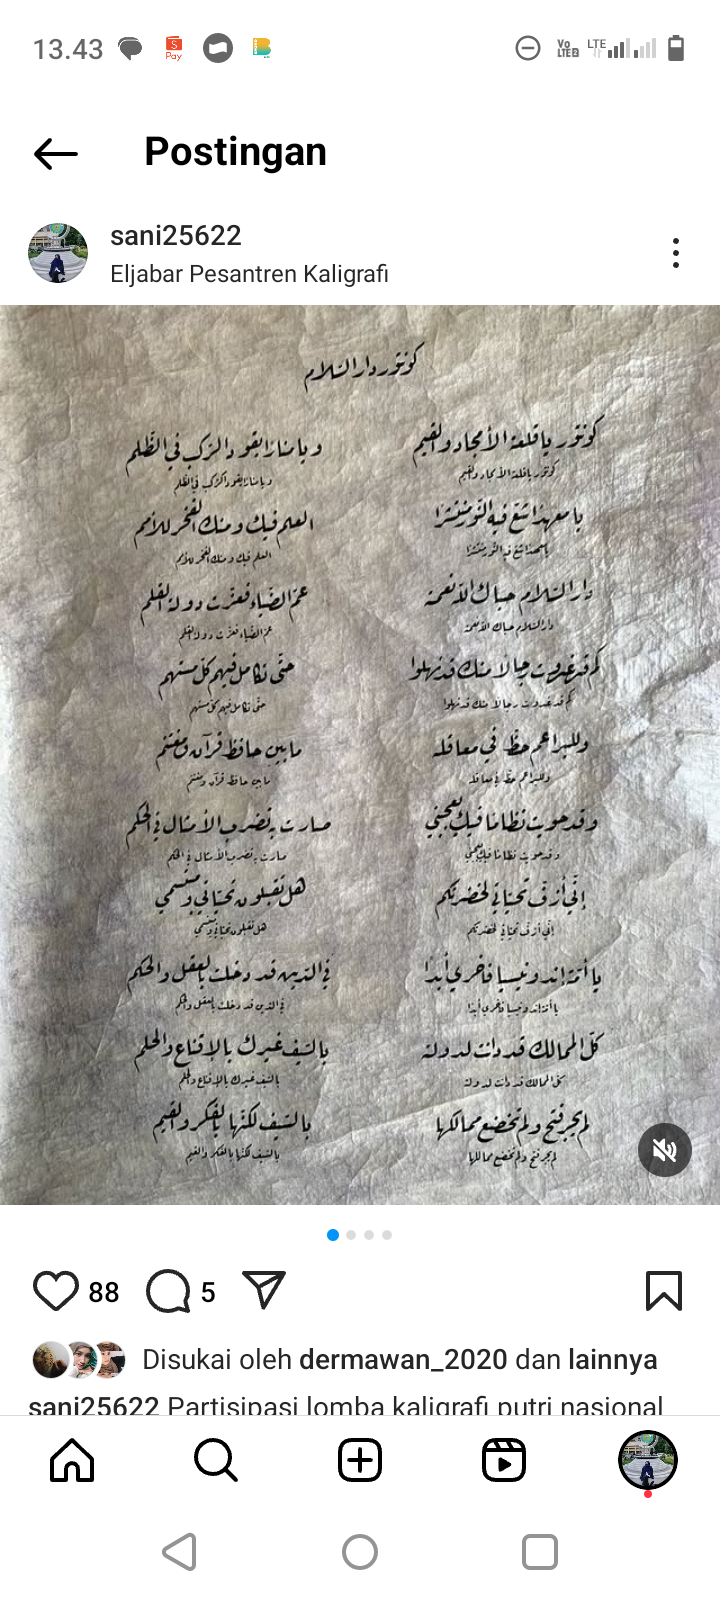 13.43
Pay
Vo LTE2
LTE
Postingan
sani25622
Eljabar Pesantren Kaligrafi
كونتور دار السلام
كونتور يا قلعة الأمجاد والقيم
ويا منارا يقود الركب في الظلم
كونتور يا قلعة الأمجاد والقيم
ويا منارا يقود الركب في الظلم
يا معهدا شع فيه النور منتشرا
العلم فيك ومنك الفخر للأمم
يا معهدا شع فيه النور منتشرا
العلم فيك ومنك الفخر للأمم
دار السلام حباك الله نعمة
عم الضياء فعزت دولة القلم
دار السلام حباك الله نعمة
عم الضياء فعزت دولة القلم
كم قد غدوت رجالا منك قد نهلوا
حتى تكامل فيهم كل
كم قد غدوت رجالا منك قد نهلوا
حتى تكامل فيهم كل
وللبراعم حظ في معاقله
ما بين حافظ قرآن ومغتنم
وللبراعم حظ في معاقله
ما بين حافظ قرآن ومغتنم
وقد حويت نظاما فيك يعجبني
صارت به تضرب الأمثال في الحكم
وقد حويت نظاما فيك يعجبني
صارت به تضرب الأمثال في الحكم
إني أزف تحياتي لحضرتكم
هل تقبلون تحياتي
إني أزف تحياتي لحضرتكم
هل تقبلون تحياتي
يا أمة إندونيسيا فافخري أبدا
في الدين قد دخلت بالعقل والحكم
يا أمة إندونيسيا فافخري أبدا
في الدين قد دخلت بالعقل والحكم
كل الممالك قد دانت لدولة
بالسيف غيرك بالإقناع والحلم
كل الممالك قد دانت لدولة
بالسيف غيرك بالإقناع والحلم
لم يجر فتح ولم تخضع ممالكها
بالسيف لكنها بالفكر والقيم
لم يجر فتح ولم تخضع ممالكها
بالسيف لكنها بالفكر والقيم
88
5
Disukai oleh dermawan_2020 dan lainnya
sani25622 Partisipasi lomba kaligrafi putri nasional